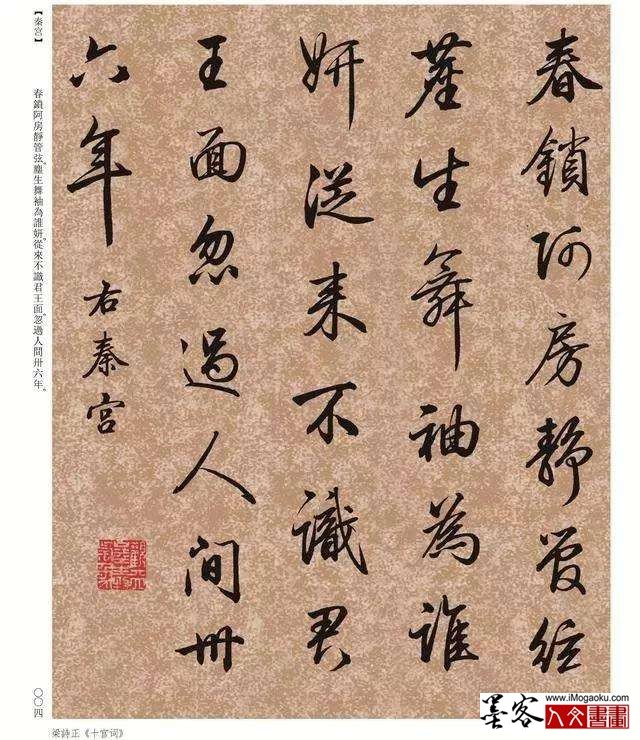 春鎖阿房靜管弦
塵生舞袖為誰
妍從来不識君
王面忽過人間卅
六年 右秦宮
【秦宮】 春鎖阿房靜管弦。塵生舞袖為誰妍。從來不識君王面。忽過人間卅六年。
〇〇四
梁詩正《十宮词》
www.iMogaoku.com
墨客 人文書畫